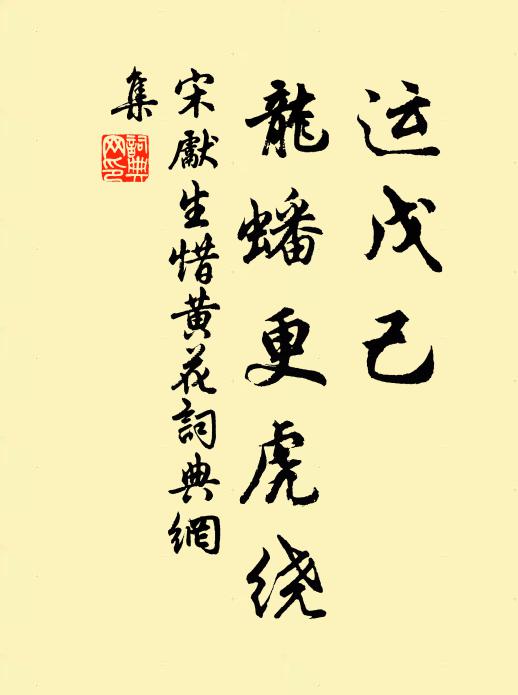 运戊己
龍蟠更虎绕
宋獻生惜黄花詞典網
集
詞典
网印